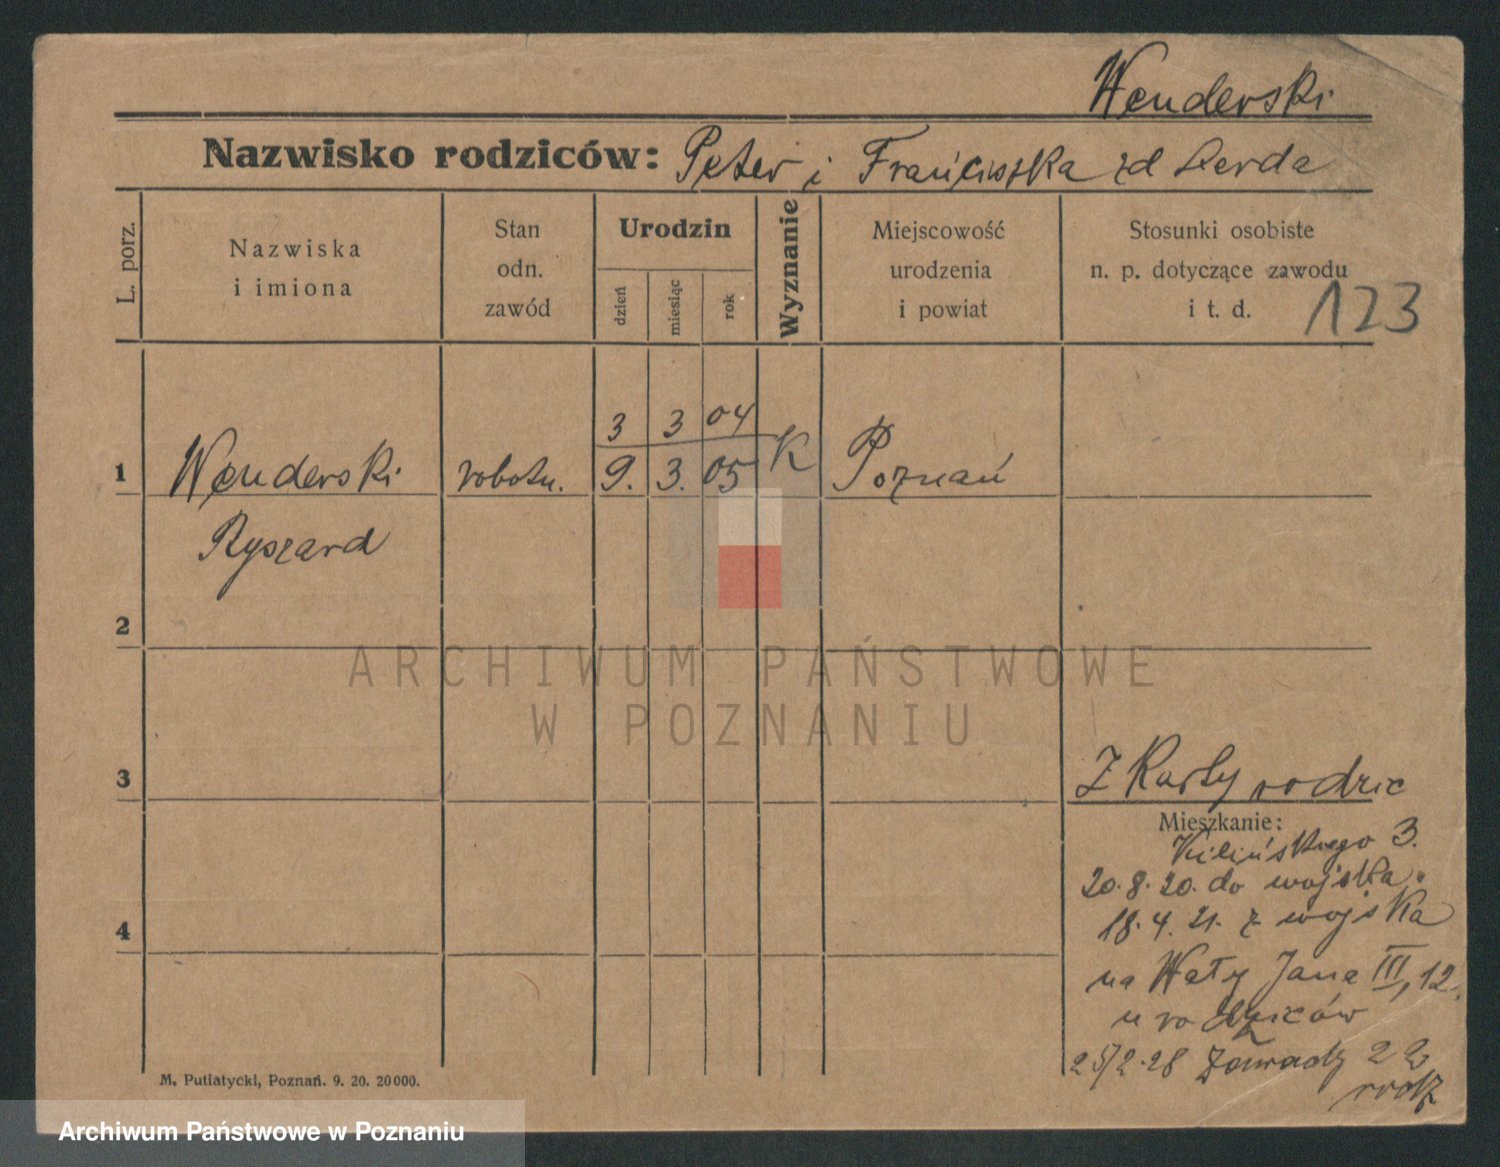 Wenderski
Nazwisko rodziców: Peter i Franciszka zd Lerda
L. porz.
Nazwiska
i imiona
Stan
odn.
zawód
Urodzin
dzień
miesiąc
rok
Wyznanie
Miejscowość
urodzenia
i powiat
Stosunki osobiste
n. p. dotyczące zawodu
i t. d.
123
3 3 04
1 Wenderski robotn. 9. 3. 05 K Poznań
Ryszard
2
ARCHIWUM PAŃSTWOWE
W POZNANIU
3
Z Karty rodzic
Mieszkanie:
Kilińskiego 3.
20.8.20. do wojska.
4
18.4.21. z wojska
na Wały Jana III, 12.
u rodziców
25/2.28 Zawady 22
rodz.
M. Putiatycki, Poznań. 9. 20. 20000.
Archiwum Państwowe w Poznaniu